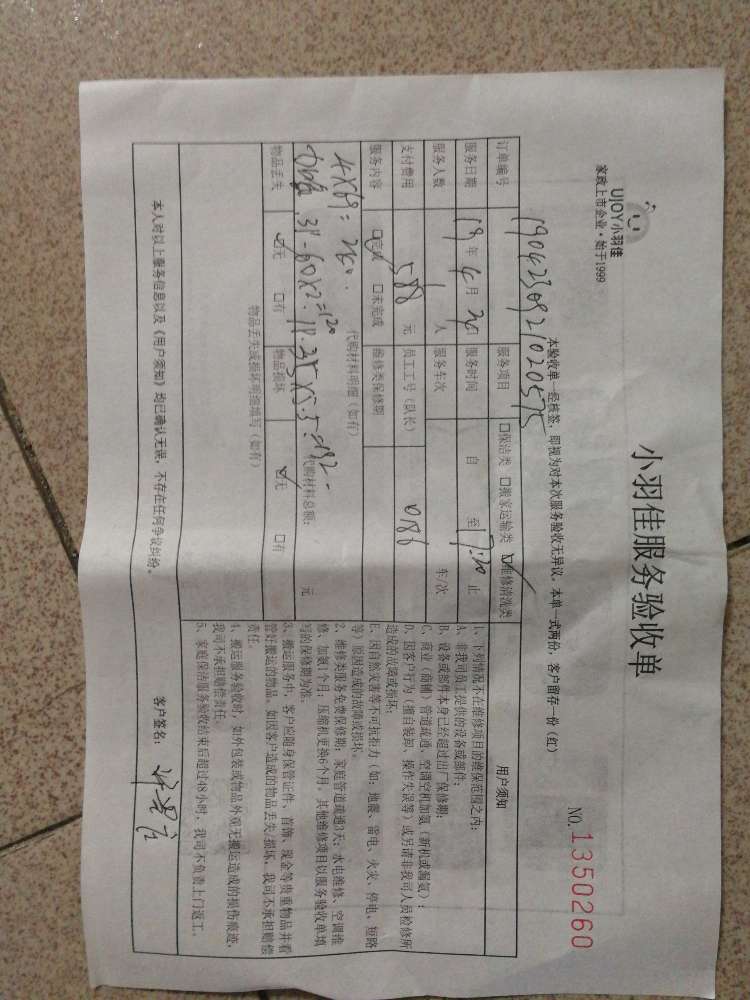 UJOY小羽佳
家政上市企业·始于1999
小羽佳服务验收单
NO. 1350260
本验收单一经核签，即视为对本次服务验收无异议。本单一式两份，客户留存一份（红）
订单编号 1904230921020575
服务项目 □保洁类 □搬家运输类 ☑维修清洗类
服务日期 19 年 4 月 日 服务时间 自 至 17:20 止
服务人数 1 人 服务车次 车/次
支付费用 588 元 员工工号（队长） 086
服务内容 ☑完成 □未完成 维修类保修期
代购材料明细（如有）
4×69=260.
3P-60×2=120
代购材料总额： 元
物品丢失 ☑无 □有 物品损坏 ☑无 □有
物品丢失或损坏明细填写（如有）
用户须知
1、下列情况不在维修项目的维保范围之内：
A、非我司员工提供的设备或部件；
B、设备或部件本身已经超过出厂保修期；
C、商业（商铺）管道疏通、空调空机加氨（新机或漏氨）；
D、因客户行为（擅自装卸、操作失误等）或另请非我司人员检修所
造成的故障或损坏；
E、因自然灾害等不可抗拒力（如：地震、雷电、火灾、停电、短路
等）原因造成的故障或损坏。
2、维修类服务免费保修期：家庭管道疏通3天；水电维修、空调维
修、加氨1个月；压缩机更换6个月。其他维修项目以服务验收单填
写的保修期为准。
3、搬运服务中，客户应随身保管证件、首饰、现金等贵重物品并看
管好搬运的物品。如因客户造成的物品丢失/损坏，我司不承担赔偿
责任。
4、搬运服务验收时，如外包装或物品外观无搬运造成的损伤痕迹，
我司不承担赔偿责任。
5、家庭保洁服务验收结束后超过48小时，我司不负责上门返工。
本人对以上服务信息以及《用户须知》均已确认无误，不存在任何争议纠纷。
客户签名：